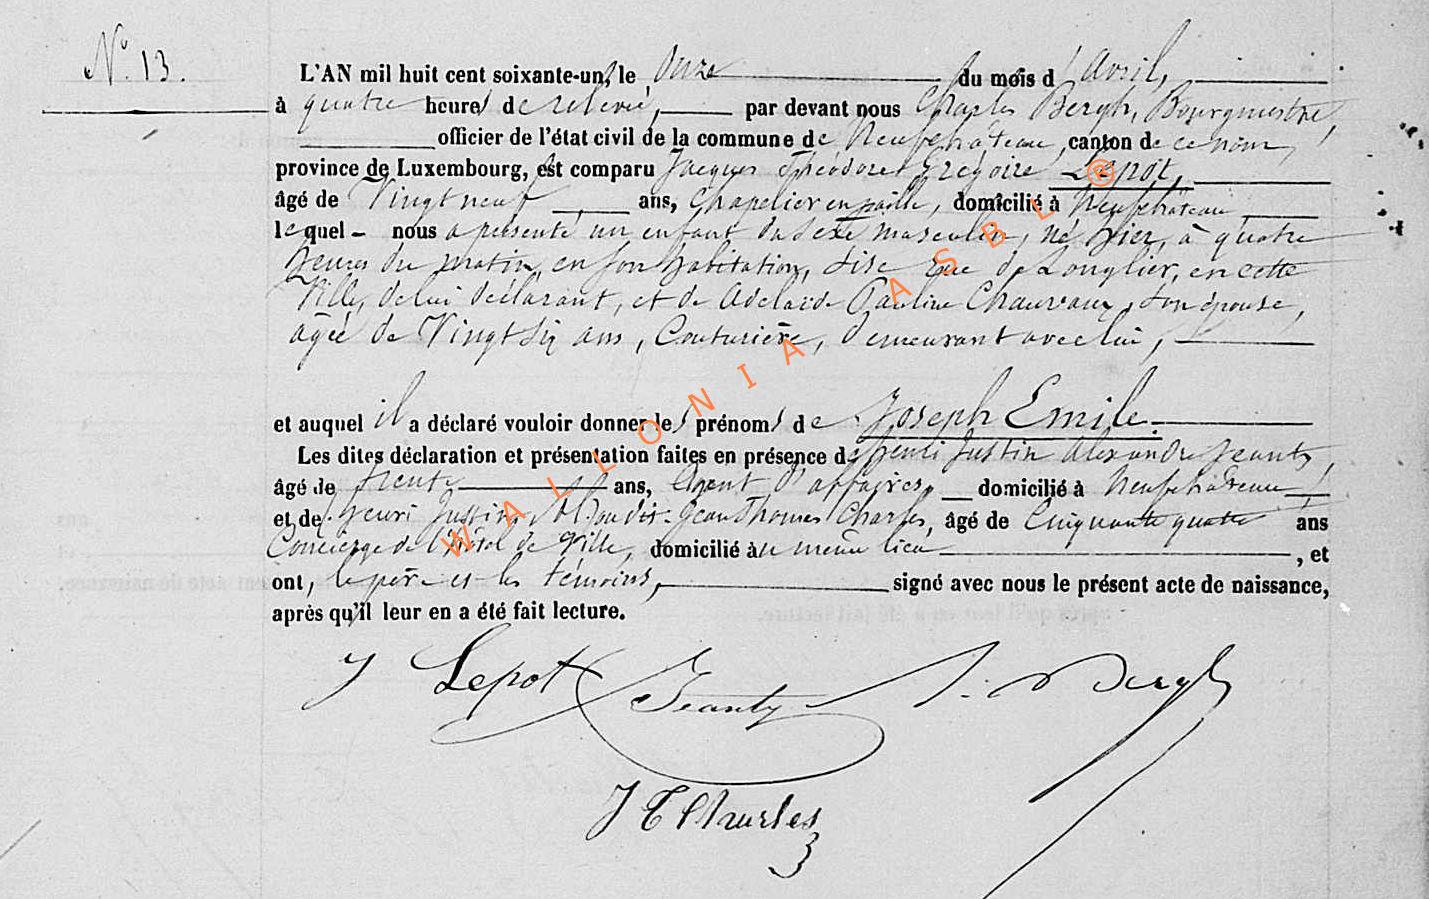 N° 13.
L'AN mil huit cent soixante-un, le onze du mois d'Avril,
à quatre heures de relevée, par devant nous Charles Bergh, Bourgmestre,
officier de l'état civil de la commune de Neufchâteau, canton de ce nom,
province de Luxembourg, est comparu Jacques Théodore Grégoire Lepot,
âgé de Vingt neuf ans, Chapelier en paille, domicilié à Neufchateau
lequel nous a présenté un enfant du sexe masculin, né hier, à quatre
heures du matin, en son habitation, sise rue de Longlier, en cette
Ville, de lui déclarant, et de Adelaïde Pauline Chauvaux, son épouse,
agée de Vingt six ans, Couturière, demeurant avec lui,
et auquel il a déclaré vouloir donner les prénoms de Joseph Emile.
Les dites déclaration et présentation faites en présence de Henri Justin Alexandre Jeanty,
âgé de trente ans, Agent d'affaires, domicilié à Neufchâteau
et de Jean Thomas Charles, âgé de Cinquante quatre ans
Concierge de l'hôtel de Ville, domicilié au même lieu, et
ont, le père et les témoins, signé avec nous le présent acte de naissance,
après qu'il leur en a été fait lecture.
J Lepot Jeanty Bergh
J T Charles
WALLONIA ASBL ®